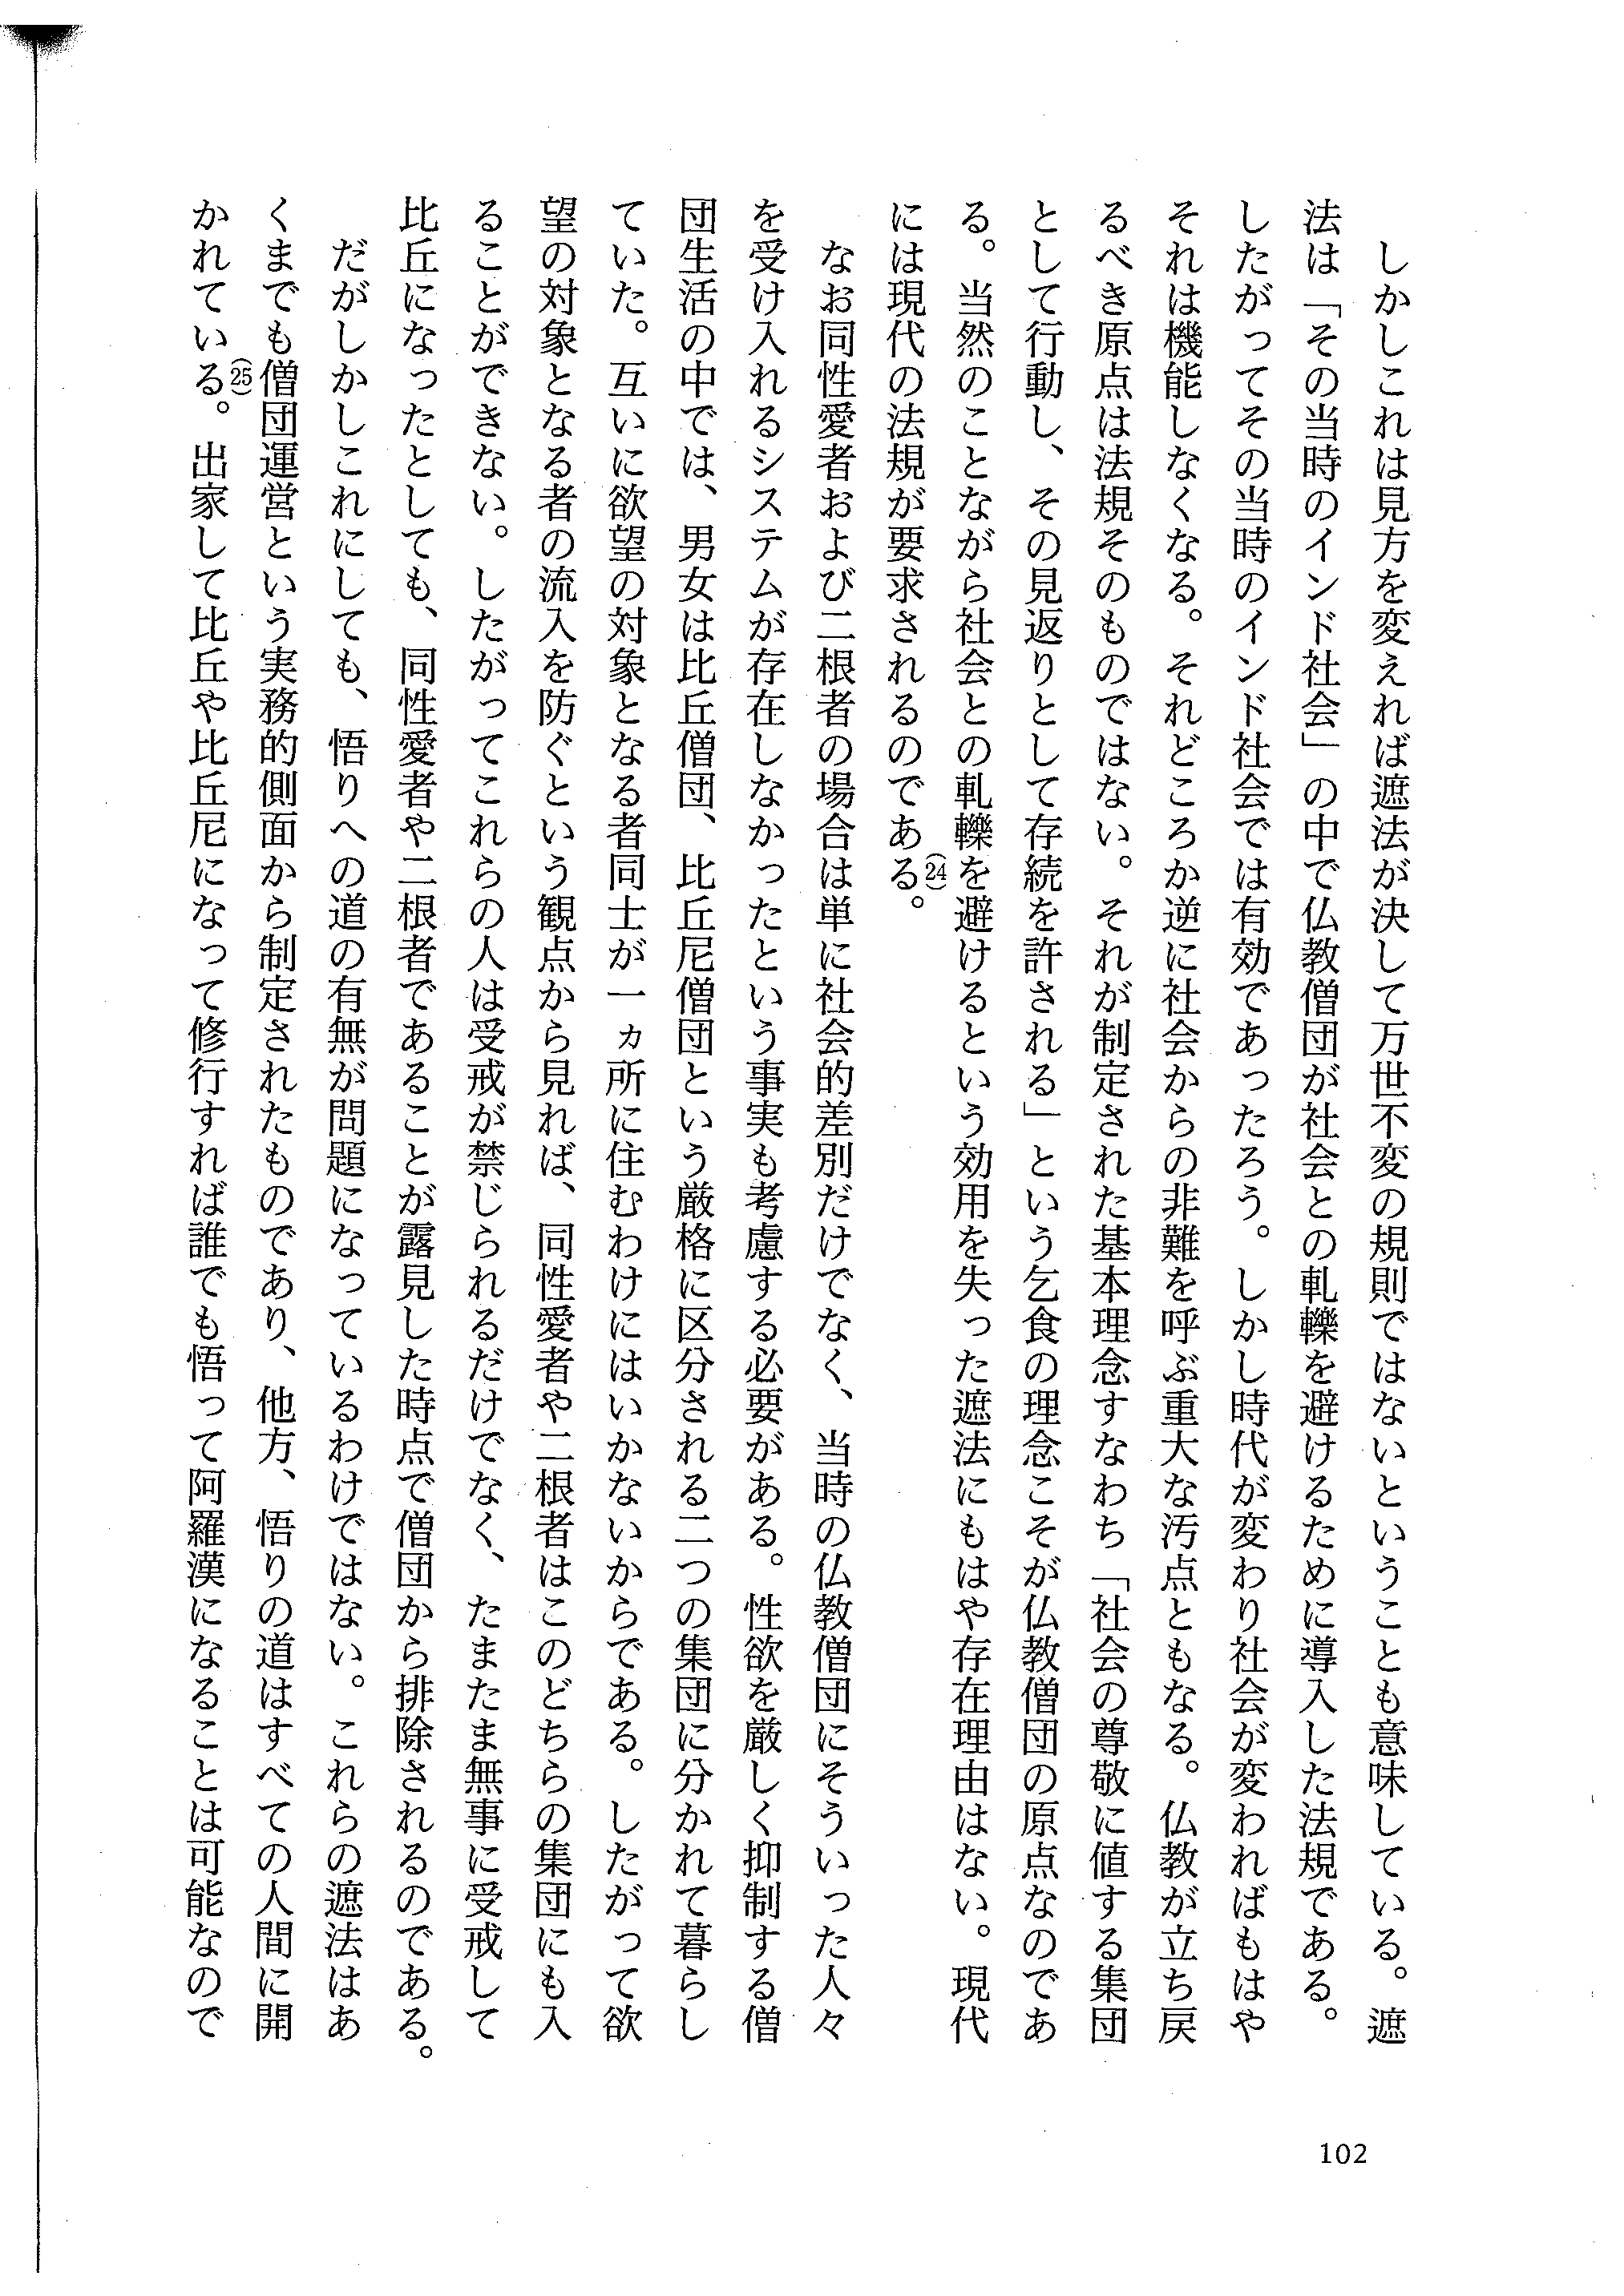 しかしこれは見方を変えれば遮法が決して万世不変の規則ではないということも意味している。遮
法は「その当時のインド社会」の中で仏教僧団が社会との軋轢を避けるために導入した法規である。
したがってその当時のインド社会では有効であったろう。しかし時代が変わり社会が変わればもはや
それは機能しなくなる。それどころか逆に社会からの非難を呼ぶ重大な汚点ともなる。仏教が立ち戻
るべき原点は法規そのものではない。それが制定された基本理念すなわち「社会の尊敬に値する集団
として行動し、その見返りとして存続を許される」という乞食の理念こそが仏教僧団の原点なのであ
る。当然のことながら社会との軋轢を避けるという効用を失った遮法にもはや存在理由はない。現代
には現代の法規が要求されるのである(24)。
なお同性愛者および二根者の場合は単に社会的差別だけでなく、当時の仏教僧団にそういった人々
を受け入れるシステムが存在しなかったという事実も考慮する必要がある。性欲を厳しく抑制する僧
団生活の中では、男女は比丘僧団、比丘尼僧団という厳格に区分される二つの集団に分かれて暮らし
ていた。互いに欲望の対象となる者同士が一ヵ所に住むわけにはいかないからである。したがって欲
望の対象となる者の流入を防ぐという観点から見れば、同性愛者や二根者はこのどちらの集団にも入
ることができない。したがってこれらの人は受戒が禁じられるだけでなく、たまたま無事に受戒して
比丘になったとしても、同性愛者や二根者であることが露見した時点で僧団から排除されるのである。
だがしかしこれにしても、悟りへの道の有無が問題になっているわけではない。これらの遮法はあ
くまでも僧団運営という実務的側面から制定されたものであり、他方、悟りの道はすべての人間に開
かれている(25)。出家して比丘や比丘尼になって修行すれば誰でも悟って阿羅漢になることは可能なので
102